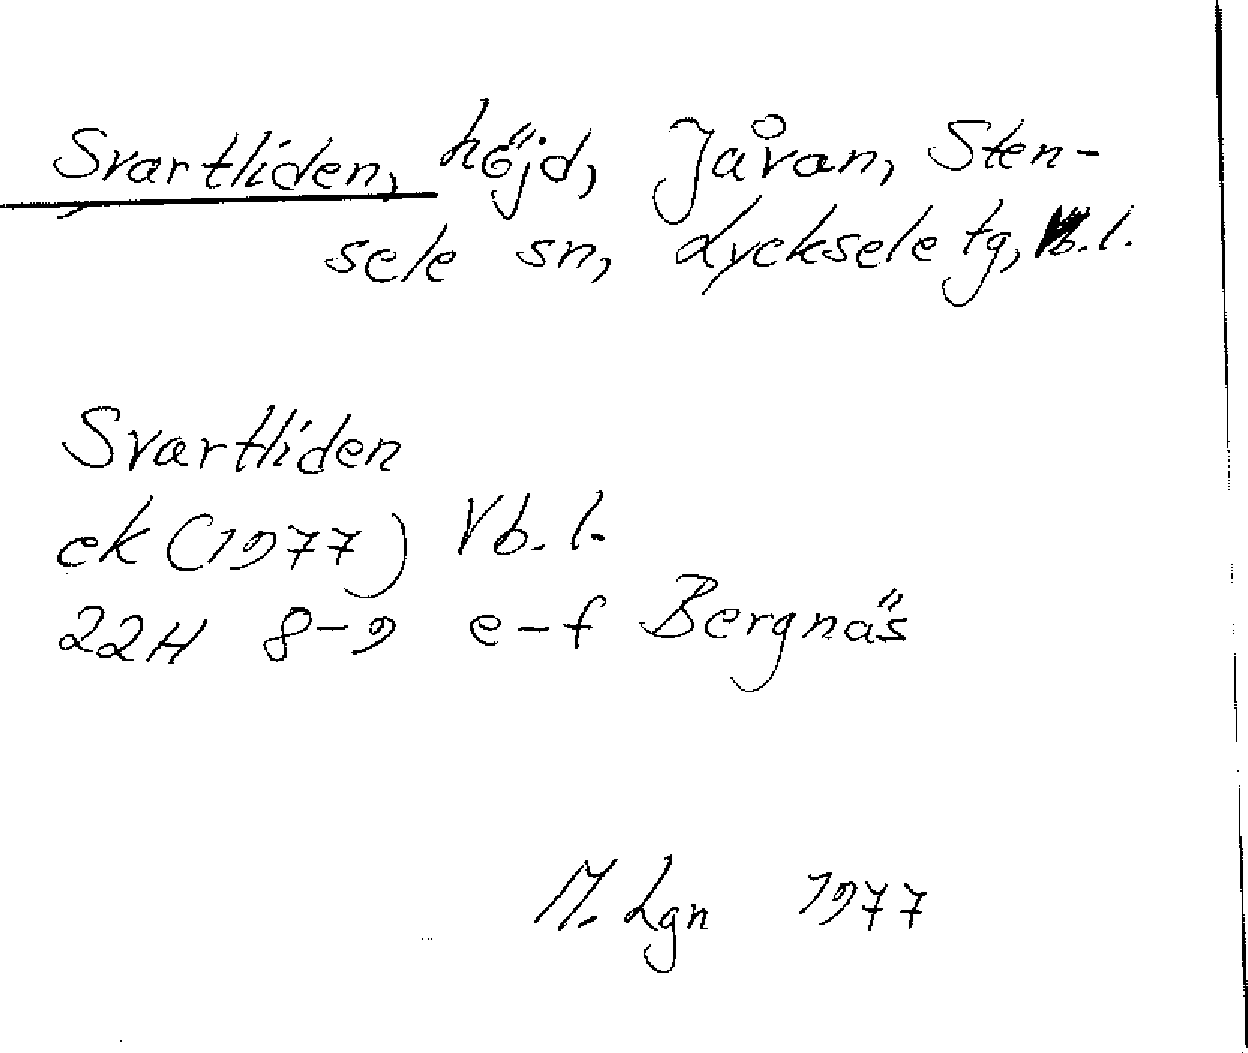 Svartliden, höjd, Jåvan, Sten-
sele sn, Lycksele tg, Vb.l.
Svartliden
ek (1977) Vb. l.
22H 8-9 e-f Bergnäs
M. Lgn 1977